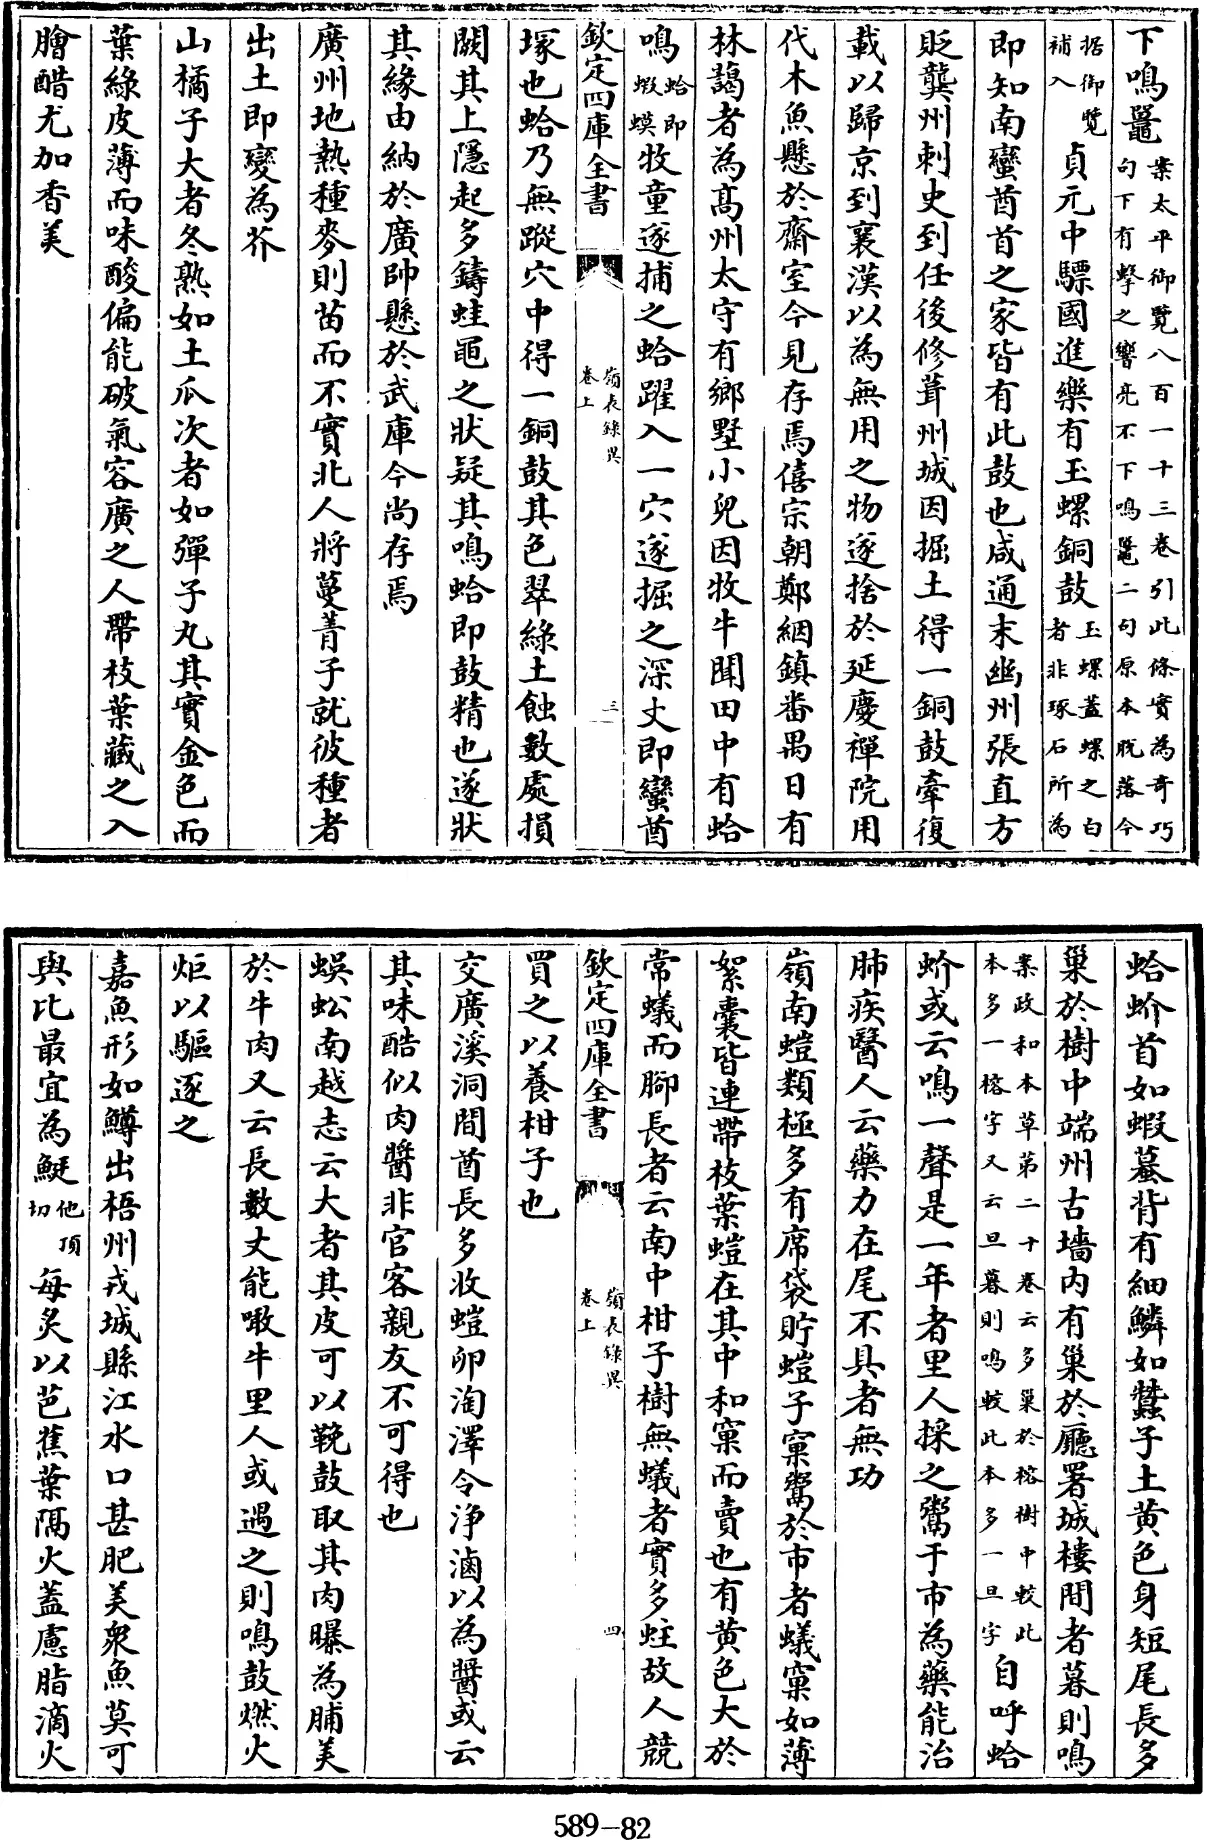 下鳴鼉案太平御覽八百一十三卷引此條實為奇巧
句下有擊之響亮不下鳴鼉二句原本脫落今
据御覽
補入貞元中驃國進樂有玉螺銅鼓玉螺蓋螺之白
者非琢石所為
即知南蠻酋首之家皆有此鼓也咸通末幽州張直方
貶龔州刺史到任後修葺州城因掘土得一銅鼓牽復
載以歸京到襄漢以為無用之物遂捨於延慶禪院用
代木魚懸於齋室今見存焉僖宗朝鄭絪鎮番禺日有
林藹者為高州太守有鄉墅小兒因牧牛聞田中有蛤
鳴蛤即
蝦蟆牧童遂捕之蛤躍入一穴遂掘之深丈即蠻酋
欽定四庫全書
嶺表錄異
卷上
三
塚也蛤乃無蹤穴中得一銅鼓其色翠綠土蝕數處損
闕其上隱起多鑄蛙黽之狀疑其鳴蛤即鼓精也遂狀
其緣由納於廣帥懸於武庫今尚存焉
廣州地熱種麥則苗而不實北人將蔓菁子就彼種者
出土即變為芥
山橘子大者冬熟如土瓜次者如彈子丸其實金色而
葉綠皮薄而味酸偏能破氣容廣之人帶枝葉藏之入
膾醋尤加香美
蛤蚧首如蝦蟇背有細鱗如蠶子土黄色身短尾長多
巢於樹中端州古墻內有巢於廳署城樓間者暮則鳴
案政和本草第二十卷云多巢於榕樹中較此
本多一榕字又云旦暮則鳴較此本多一旦字自呼蛤
蚧或云鳴一聲是一年者里人採之鬻于市為藥能治
肺疾醫人云藥力在尾不具者無功
嶺南螘類極多有席袋貯螘子窠鬻於市者蟻窠如薄
絮囊皆連帶枝葉螘在其中和窠而賣也有黄色大於
常蟻而腳長者云南中柑子樹無蟻者實多蛀故人競
欽定四庫全書
嶺表錄異
卷上
四
買之以養柑子也
交廣溪洞間酋長多收螘卵淘澤令净滷以為醬或云
其味酷似肉醬非官客親友不可得也
蜈蚣南越志云大者其皮可以鞔鼓取其肉曝為脯美
於牛肉又云長數丈能噉牛里人或遇之則鳴鼓燃火
炬以驅逐之
嘉魚形如鱒出梧州戎城縣江水口甚肥美衆魚莫可
與比最宜為鯅他頂
切每炙以芭蕉葉隔火蓋慮脂滴火
589-82